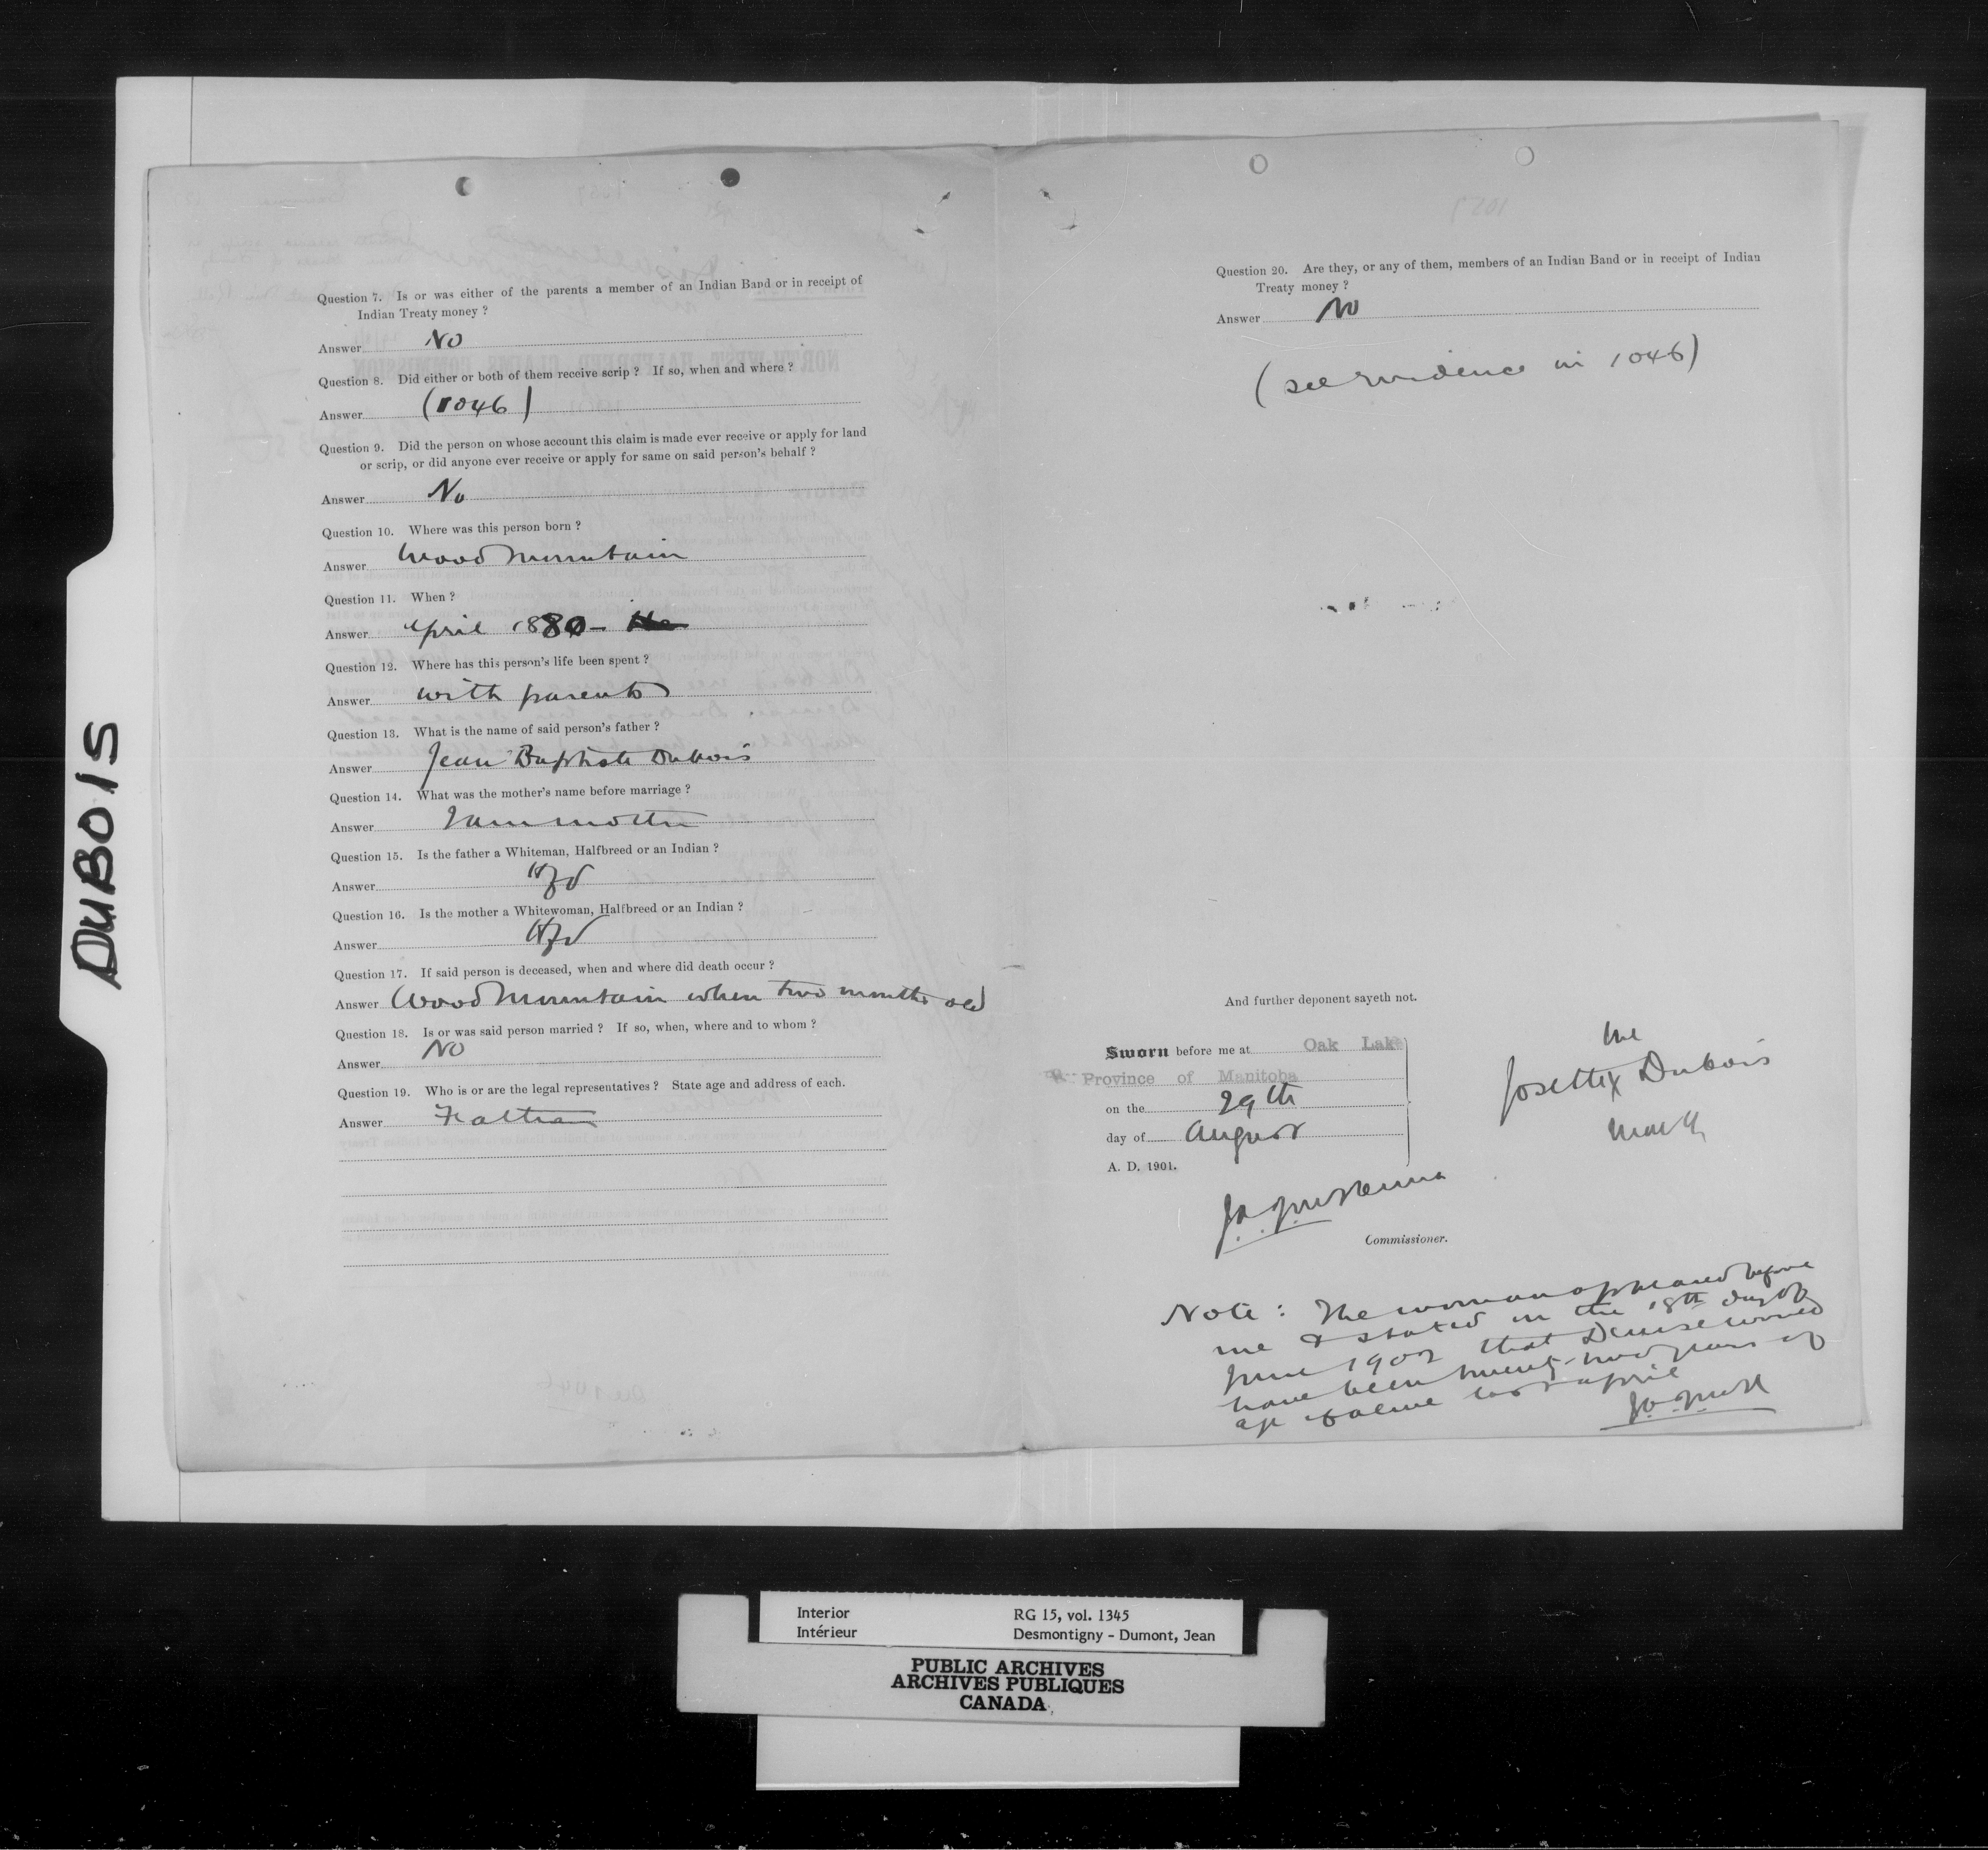 DUBOIS
Question 7. Is or was either of the parents a member of an Indian Band or in receipt of
Indian Treaty money ?
Answer No
Question 8. Did either or both of them receive scrip ? If so, when and where ?
Answer (1046)
Question 9. Did the person on whose account this claim is made ever receive or apply for land
or scrip, or did anyone ever receive or apply for same on said person's behalf ?
Answer No
Question 10. Where was this person born ?
Answer Wood Mountain
Question 11. When ?
Answer April 1880 -
Question 12. Where has this person's life been spent ?
Answer with parents
Question 13. What is the name of said person's father ?
Answer Jean Baptiste Dubois
Question 14. What was the mother's name before marriage ?
Answer
Question 15. Is the father a Whiteman, Halfbreed or an Indian ?
Answer Hfd
Question 16. Is the mother a Whitewoman, Halfbreed or an Indian ?
Answer Hfd
Question 17. If said person is deceased, when and where did death occur ?
Answer Wood Mountain when two months old
Question 18. Is or was said person married ? If so, when, where and to whom ?
Answer No
Question 19. Who is or are the legal representatives ? State age and address of each.
Answer
Question 20. Are they, or any of them, members of an Indian Band or in receipt of Indian
Treaty money ?
Answer No
(see evidence in 1046)
And further deponent sayeth not.
Sworn before me at Oak Lake
Province of Manitoba
on the 29th
day of August
A. D. 1901.
Commissioner.
her
Josette X Dubois
mark
Note : The woman appeared before
me & stated on the 18th day of
June 1902 that Denise would
have been twenty-two years of
age if alive last April
Interior
Intérieur
RG 15, vol. 1345
Desmontigny - Dumont, Jean
PUBLIC ARCHIVES
ARCHIVES PUBLIQUES
CANADA